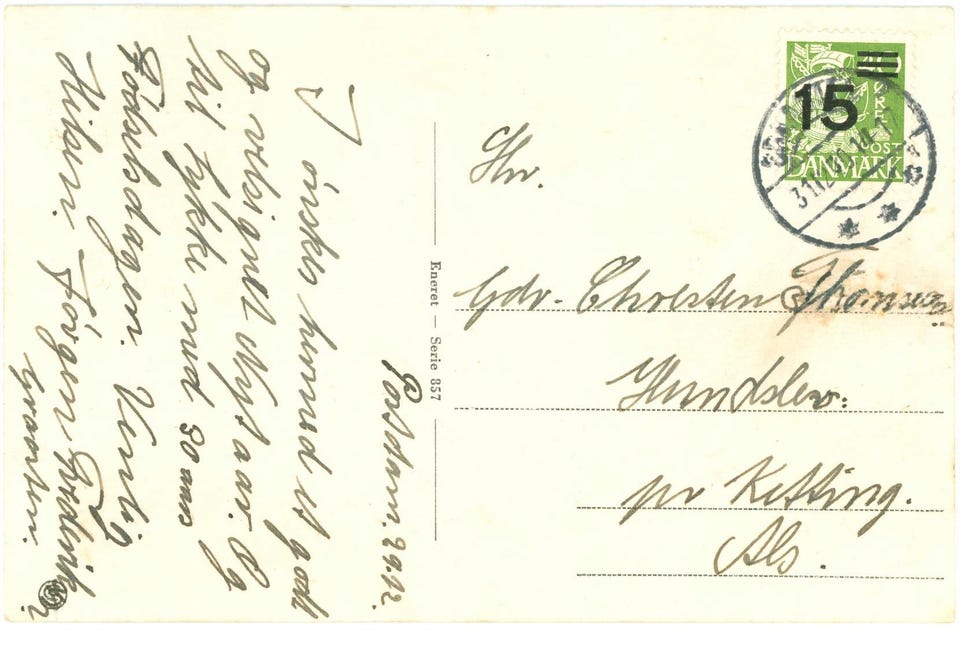 Potsdam. 29.12.
I önskes hermed et godt
og velsignet Nytaar. Og
til Lykke med 80 aars
Födselsdagen. Venlig
Hilsen. Jörgen Fredrik
Graasten.
Eneret — Serie 857
Hr.
Gdr. Chresten Thomsen
Hundslev.
pr Ketting.
Als.
15
ØRE
POST
DANMARK